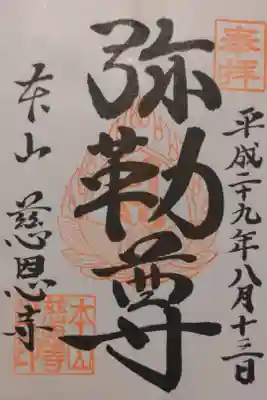 奉拝
平成二十九年八月十三日
弥勒尊
本山 慈恩寺
本山
慈恩寺
印